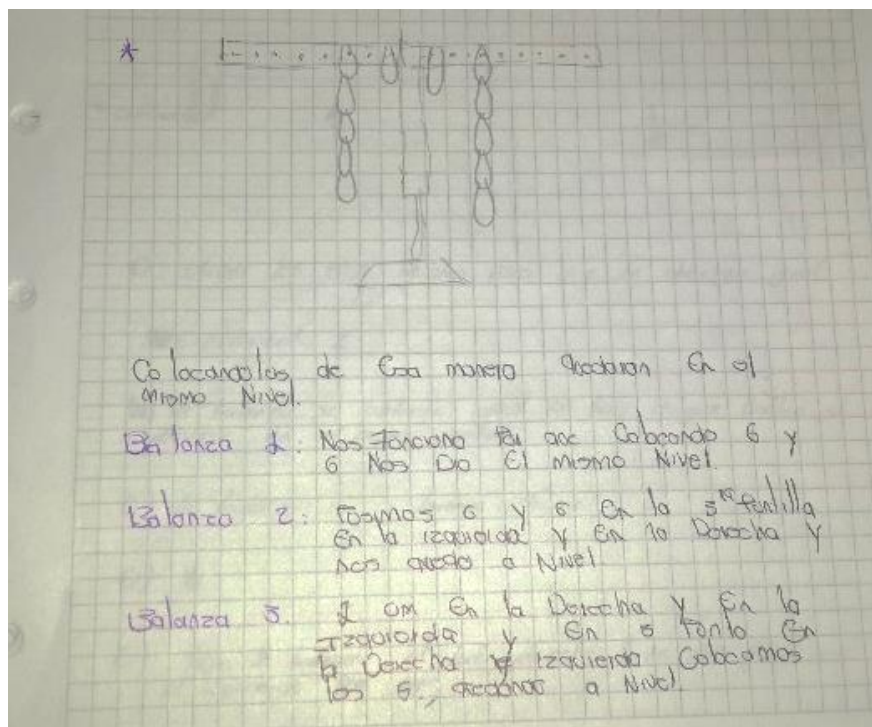 *
Colocandolos de Esa manera quedaron En el
mismo Nivel.
Balanza 1: Nos funciono por que Colocando 6 y
6 Nos Dio El mismo Nivel.
Balanza 2: 6 y 6 En la 3ra
En la izquierda y En la Derecha y
nos quedo a Nivel
Balanza 3. 1 cm En la Derecha y En la
Izquierda y En 5 Punto En
la Derecha y izquierda Colocamos
los 5, quedando a Nivel.